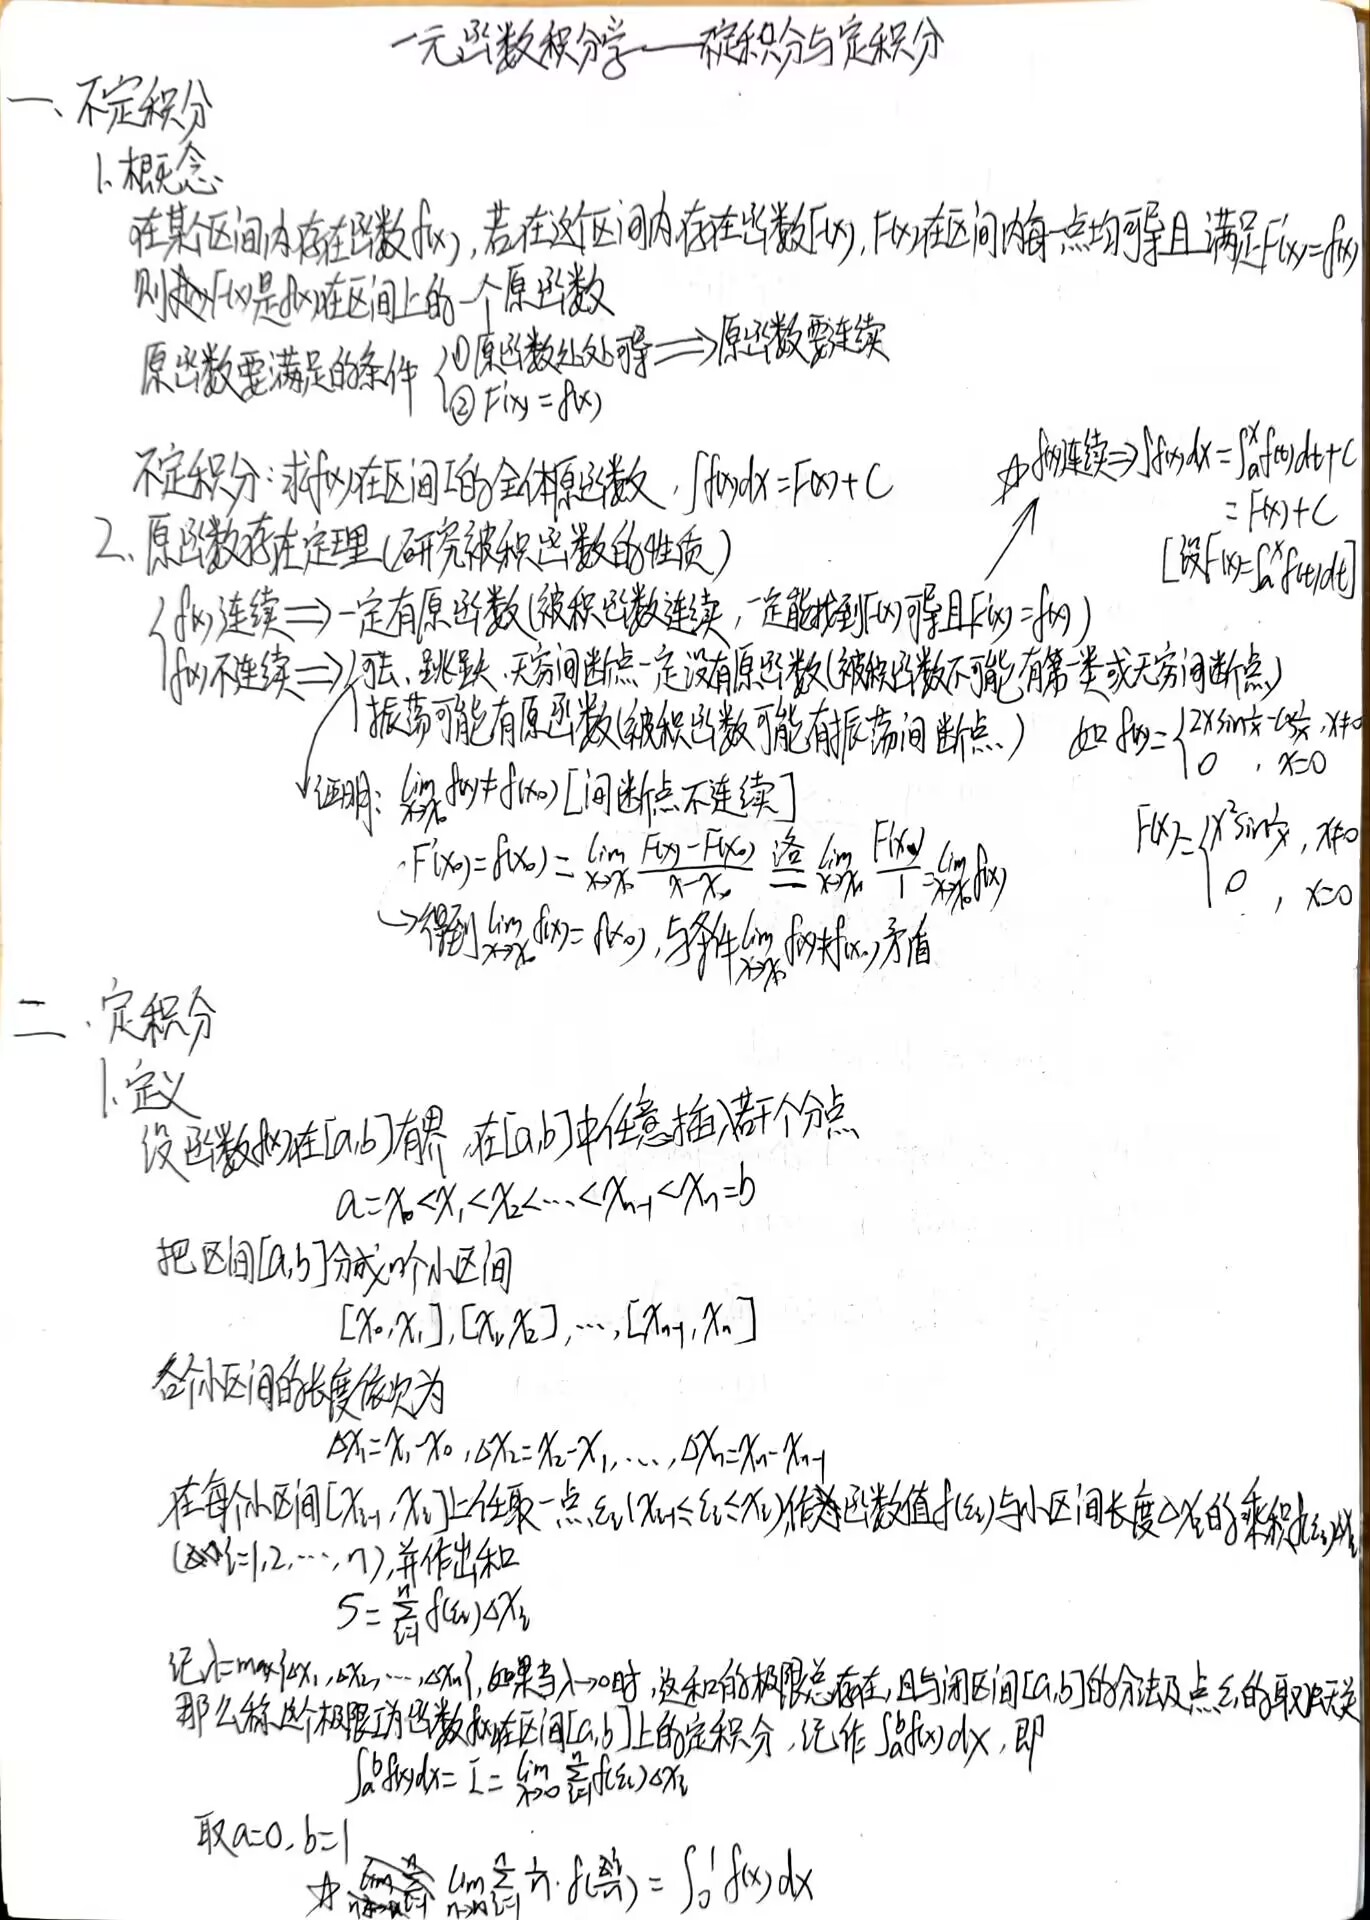 一元函数积分学——不定积分与定积分
一、不定积分
1.概念
在某个区间内存在函数f(x),若在这个区间内存在函数F(x),F(x)在区间内每一点均可导且满足F'(x)=f(x)
则称F(x)是f(x)在区间上的一个原函数
原函数要满足的条件 {①原函数处处可导⟹原函数要连续
②F'(x)=f(x)
不定积分:求f(x)在区间I的全体原函数,∫f(x)dx=F(x)+C
☆f(x)连续⇒∫f(x)dx=∫ₐˣf(t)dt+C
=F(x)+C
[设F(x)=∫ₐˣf(t)dt]
2、原函数存在定理(研究被积函数的性质)
{f(x)连续⟹一定有原函数(被积函数连续,一定能找到F(x)可导且F'(x)=f(x))
f(x)不连续⟹{可去、跳跃、无穷间断点一定没有原函数(被积函数不可能有第一类或无穷间断点)
振荡可能有原函数(被积函数可能有振荡间断点) 如f(x)={2xsin1/x-cos1/x,x≠0
0,x=0
F(x)={x²sin1/x,x≠0
0,x=0
证明:lim x→x₀ f(x)≠f(x₀)[间断点不连续]
F'(x₀)=f(x₀)=lim x→x₀ (F(x)-F(x₀))/(x-x₀) 洛= lim x→x₀ F'(x)/1=lim x→x₀ f(x)
→得到lim x→x₀ f(x)=f(x₀),与条件lim x→x₀ f(x)≠f(x₀)矛盾
二、定积分
1.定义
设函数f(x)在[a,b]有界,在[a,b]中任意插入若干个分点
a=x₀<x₁<x₂<…<xₙ₋₁<xₙ=b
把区间[a,b]分成n个小区间
[x₀,x₁],[x₁,x₂],…,[xₙ₋₁,xₙ]
各个小区间的长度依次为
Δx₁=x₁-x₀,Δx₂=x₂-x₁,…,Δxₙ=xₙ-xₙ₋₁
在每个小区间[xᵢ₋₁,xᵢ]上任取一点εᵢ(xᵢ₋₁≤εᵢ≤xᵢ),作函数值f(εᵢ)与小区间长度Δxᵢ的乘积f(εᵢ)Δxᵢ
(i=1,2,…,n),并作出和
S=Σᵢ₌₁ⁿf(εᵢ)Δxᵢ
记λ=max{Δx₁,Δx₂,…,Δxₙ},如果当λ→0时,这和的极限总存在,且与闭区间[a,b]的分法及点εᵢ的取法无关
那么称这个极限I为函数f(x)在区间[a,b]上的定积分,记作∫ₐᵇf(x)dx,即
∫ₐᵇf(x)dx=I=lim λ→0 Σᵢ₌₁ⁿf(εᵢ)Δxᵢ
取a=0,b=1
☆ lim n→∞ Σᵢ₌₁ⁿ 1/n·f(i/n)=∫₀¹f(x)dx